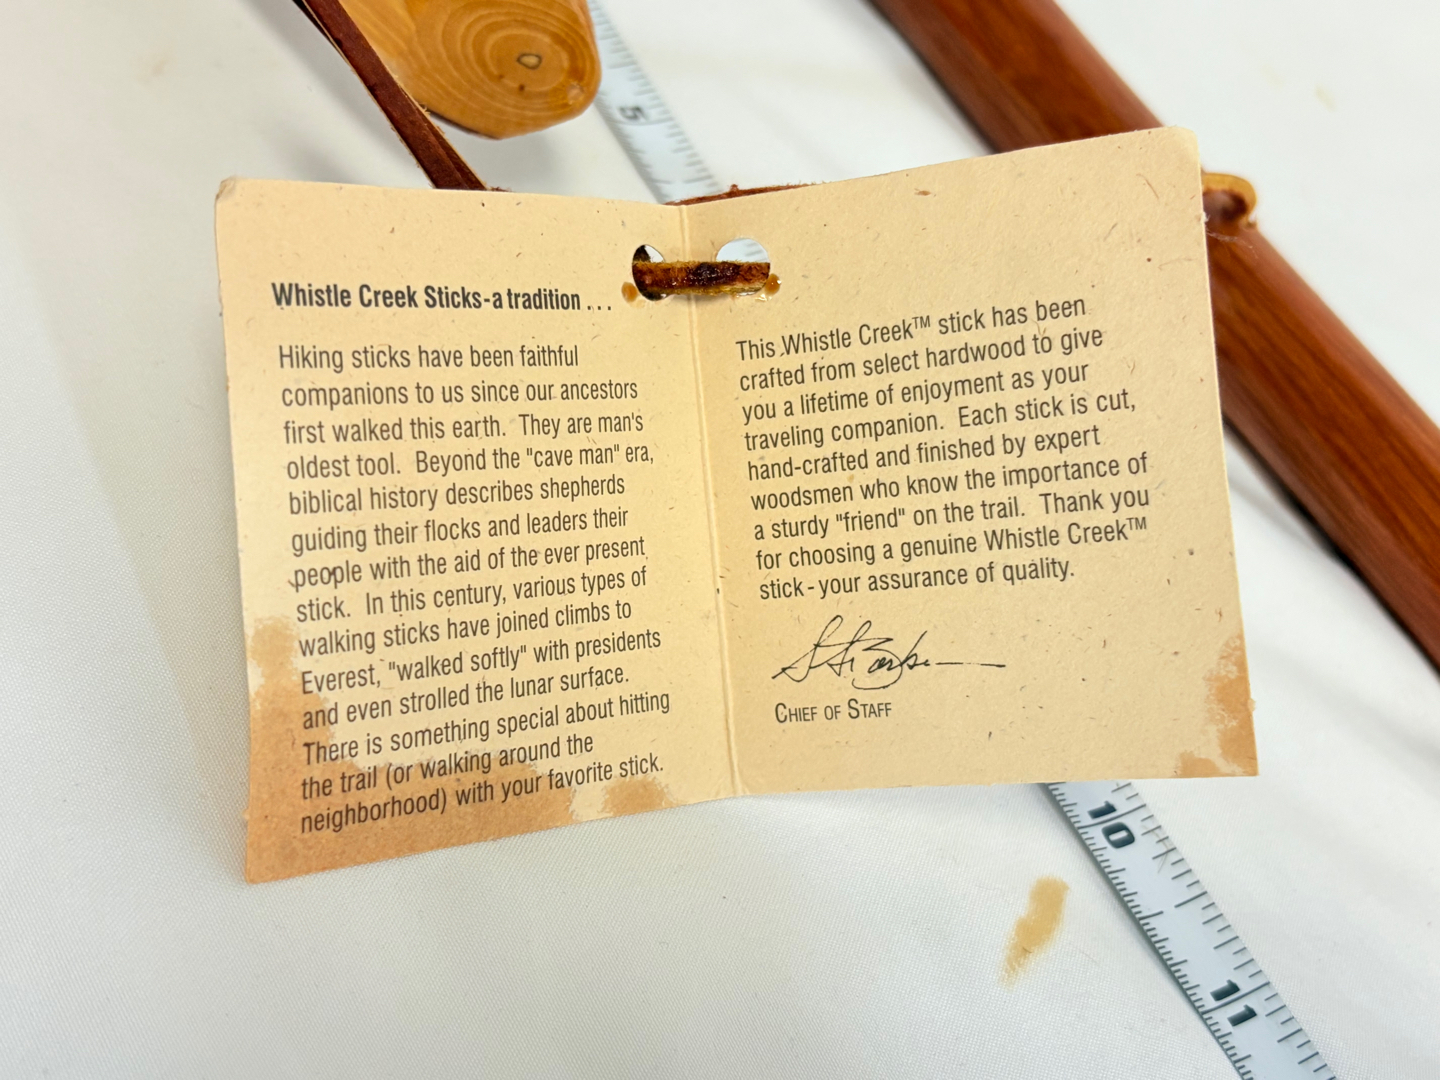 Whistle Creek Sticks-a tradition . . .
Hiking sticks have been faithful
companions to us since our ancestors
first walked this earth.  They are man's
oldest tool.  Beyond the "cave man" era,
biblical history describes shepherds
guiding their flocks and leaders their
people with the aid of the ever present
stick.  In this century, various types of
walking sticks have joined climbs to
Everest, "walked softly" with presidents
and even strolled the lunar surface.
There is something special about hitting
the trail (or walking around the
neighborhood) with your favorite stick.
This Whistle Creek™ stick has been
crafted from select hardwood to give
you a lifetime of enjoyment as your
traveling companion.  Each stick is cut,
hand-crafted and finished by expert
woodsmen who know the importance of
a sturdy "friend" on the trail.  Thank you
for choosing a genuine Whistle Creek™
stick - your assurance of quality.
CHIEF OF STAFF
5
10
11